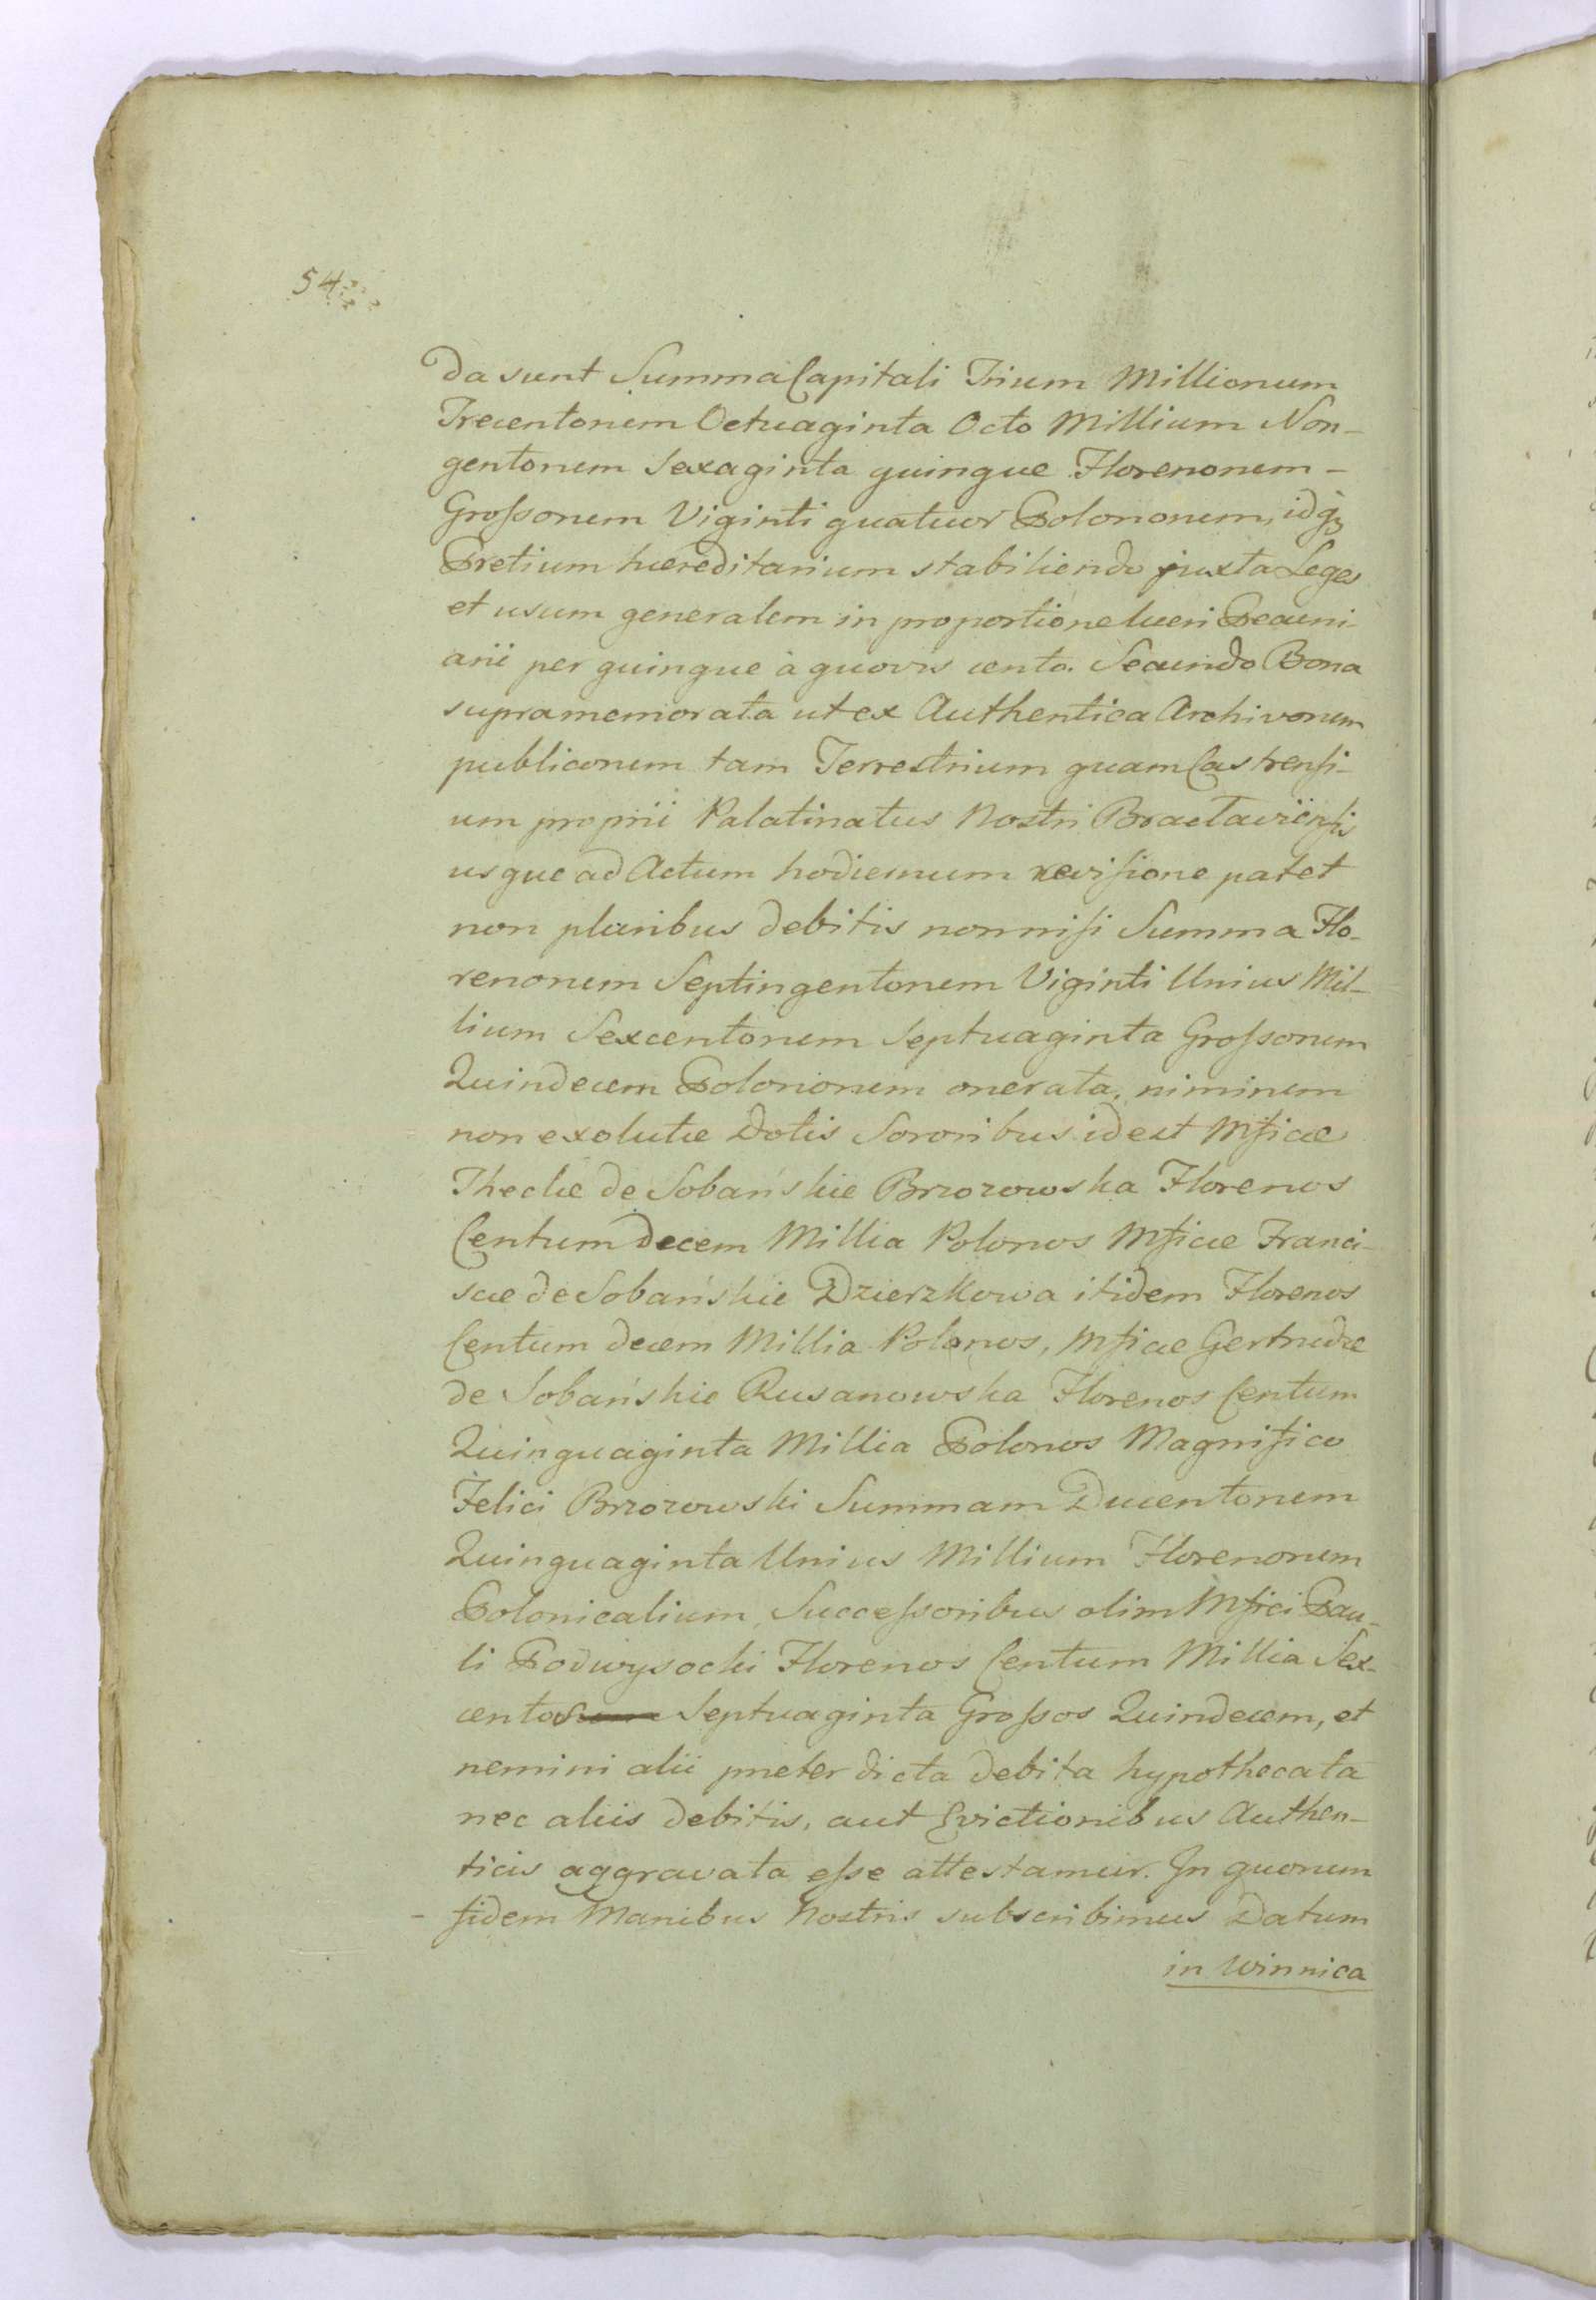 54
da sunt Summa Capitali Trium Millionum
Trecentorum Octuaginta Octo Millium Non-
gentorum Sexaginta quinque Florenorum -
Grossorum Viginti quatuor Polonorum, idq3
Pretium hæreditarium stabiliendo juxta Leges
et usum generalem in proportione lucri Pecuni-
arii per quinque à quovis cento. Secundo Bona
supramemorata ut ex Authentica Archivorum
publicorum tam Terrestrium quam Castrensi-
um proprii Palatinatus Nostri Braclaviensis
usque ad Actum hodiernum revisione patet
non pluribus debitis nonnisi Summa Flo-
renorum Septingentorum Viginti Unius Mil-
lium Sexcentorum Septuaginta Grossorum
Quindecem Polonorum onerata, niminum
non exolutæ Dotis Sororibus id est Mficæ
Theclæ de Sobańskie Brzozowska Florenos
Centum decem Millia Polonos Mficæ Franci-
scæ de Sobańskie Dzierzkowa itidem Florenos
Centum decem Millia Polonos, Mficæ Gertrudæ
de Sobańskie Rusanowska Florenos Centum
Quinquaginta Millia Polonos Magnifico
Felici Brzozowski Summam Ducentorum
Quinquaginta Unius Millium Florenorum
Polonicalium, Successoribus olim Mfici Pau-
li Podwysocki Florenos Centum Millia Sex-
centos Septuaginta Grossos Quindecem, et
nemini alii præter dicta debita hypothecata
nec aliis debitis, aut Evictionibus Authen-
ticis aggravata esse attestamur. In quorum
- fidem Manibus Nostris subscribimus Datum
in Winnica